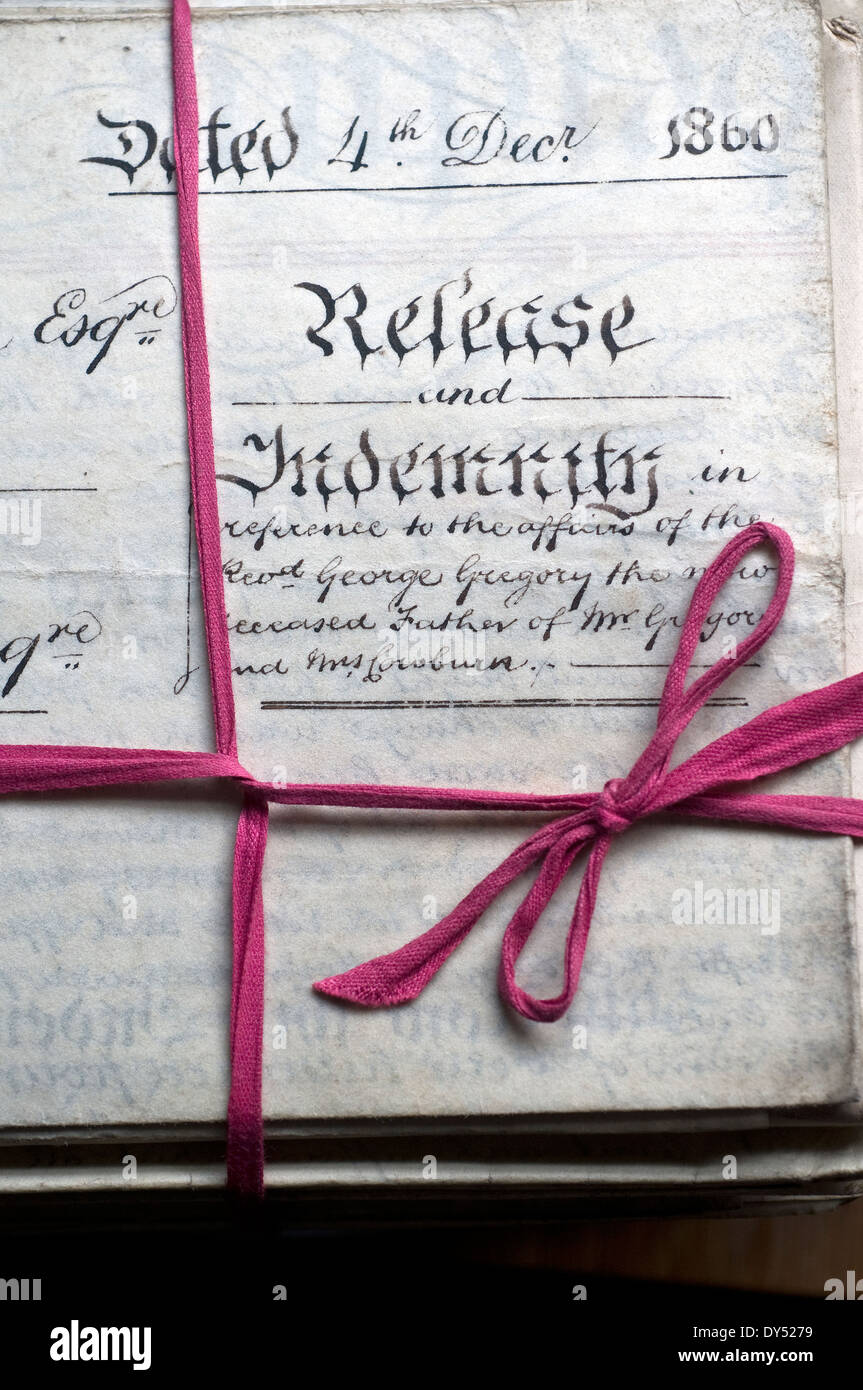 Dated 4th. Decr. 1860
Esqre
Release
and
Indemnity in
reference to the affairs of the
Revd George Gregory the now
deceased Father of Mr Gregory
and Mrs Cowburn.
qre
a
alamy
Image ID: DY5279
www.alamy.com